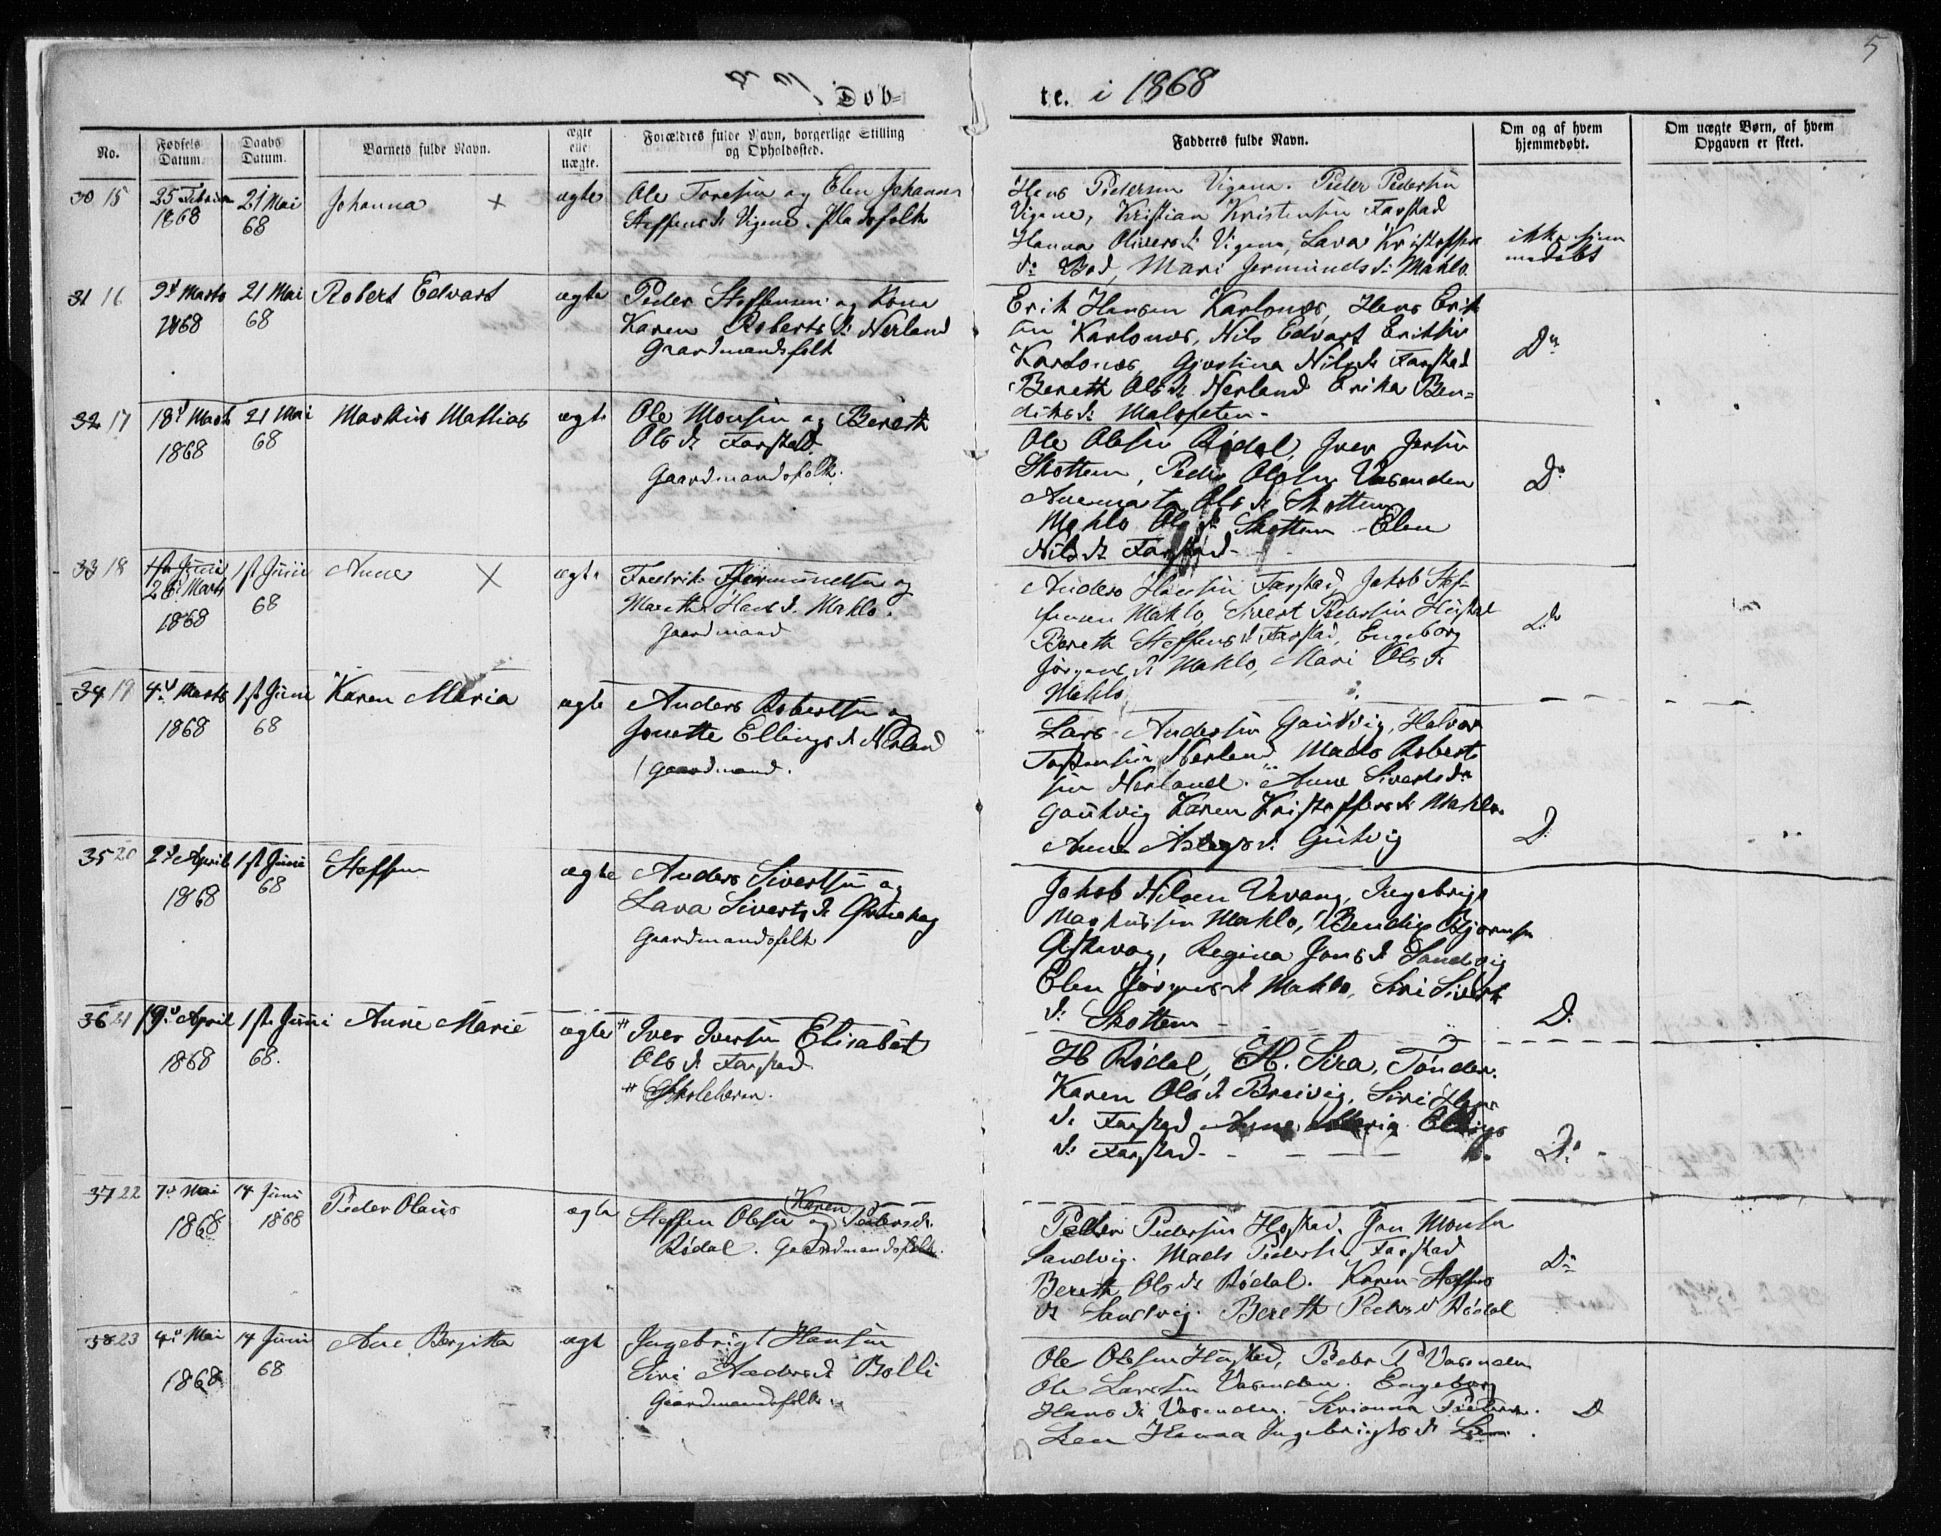 5
Døb= te. i 1868
No. Fødsels Datum. Daabs Datum. Barnets fulde Navn. ægte elle uægte. Forældres fulde Navn, borgerlige Stilling og Opholdssted. Fadderes fulde Navn. Om og af hvem hjemmedøbt. Om uægte Børn, af hvem Opgaven er skeet.
30 15 25 Februar 1868 21 Mai 68 Johanna × ægte
Ole Toresen og Elen Johanna
Steffensdr Vigene. Pladsfolk
Hans Pedersen Vigene. Peder Pedersen
Vigene, Kristian Kristensen Farstad
Hanna Olivers dr Vigene, Lava Kristoffers
dr Bod, Mari Jermunds dr Mahlo
ikke hjem
medøbt
31 16 9d Marts 1868 21 Mai 68 Robert Edvart ægte
Peder Steffensen og Kona
Karen Roberts dr Nerland
Graardmandsfolk
Erik Hansen Karlsnæs, Hans Erik
sen Karlsnæs, Nils Edvart Eriksen
Karlsnæs, Gjertina Nils dr Farstad
Bereth Ols dr Nerland Erika Ben=
diks dr Malefeten -
Do
32 17 18d Marts 1868 21 Mai 68 Markus Mathias ægte
Ole Monsen og Bereth
Ols dr Farstad.
Gaardmandsfolk.
Ole Olesen Rødal, Iver Jersen
Skottem, Peder Olesen Vasenden
Anemarta Ols dr Skottem
Mahlo Ols dr Skottem Elen
Nils dr Farstad -
Do
33 18 1ste Juni 26 Marts 1868 1ste Juni 68 Anne × ægte
Fredrik Jermundsen og
Mareth Hans dr Mahlo.
Gaardmand
Anders Hansen Farstad, Jakob Stef-
fensen Mahlo, Sivert Pedersen Hustad
Bereth Steffens dr Farstad, Engeborg
Jørgens dr Mahlo, Mari Ols dr
Mahlo
Do
34 19 4d Marts 1868 1ste Juni 68 Karen Maria ægte
Anders Robertsen og
Jonette Ellings dr Nerland
Gaardmand.
Lars Andersen Gautvig, Halvor
Torstensen Nerland, Mads Robert
sen Nerland. Anne Siverts dr
Gautvig Karen Kristoffers dr Mahlo.
Anne Aslags dr Gutvig
D.
35 20 2d April 1868 1ste Juni 68 Steffen ægte
Anders Sivertsen og
Lava Siverts dr
Gaardmandsfolk
Jakob Nilsen Vevang, Ingebrigt
Markussen Mahlo, Bendix Bjørnsen
Askevag, Regina Jons dr Sandvig
Elen Jørgens dr Mahlo, Siri Sivert
dr Skottem
D.
36 21 19d April 1868 1ste Juni 68. Anne Marie ægte
# Iver Iversen Elisabet
Ols dr Farstad
# Skolelærer.
H Rødal, H. Sira, Tønder.
Karen Ols dr Breivig, Siri Hans
dr Farstad Anne Maria Ellings
dr Farstad -
Do
37 22 7d Mai 1868 14 Juni 1868 Peder Olaus ægte
Steffen Olsen og Karen Peders dr
Rødal. Gaardmandsfolk.
Peder Pedersen Hostad, Jon Monsen
Sandvig. Mads Pedersen Farstad
Bereth Ols dr Rødal. Karen Steffens
dr Sandvig. Bereth Peders dr Rødal
Do
38 23 4d Mai 1868 14 Juni 68 Ane Bergitta ægt
Ingebrigt Hansen
Siri Anders dr Bolli
Gaardmandsfolk.
Ole Olesen Hustad, Peder P Vasenden
Ole Larsen Vasenden. Engeborg
Hans dr Vasenden. Serianna Peders.
Leen Hanna Ingebrigts dr Leen.
D